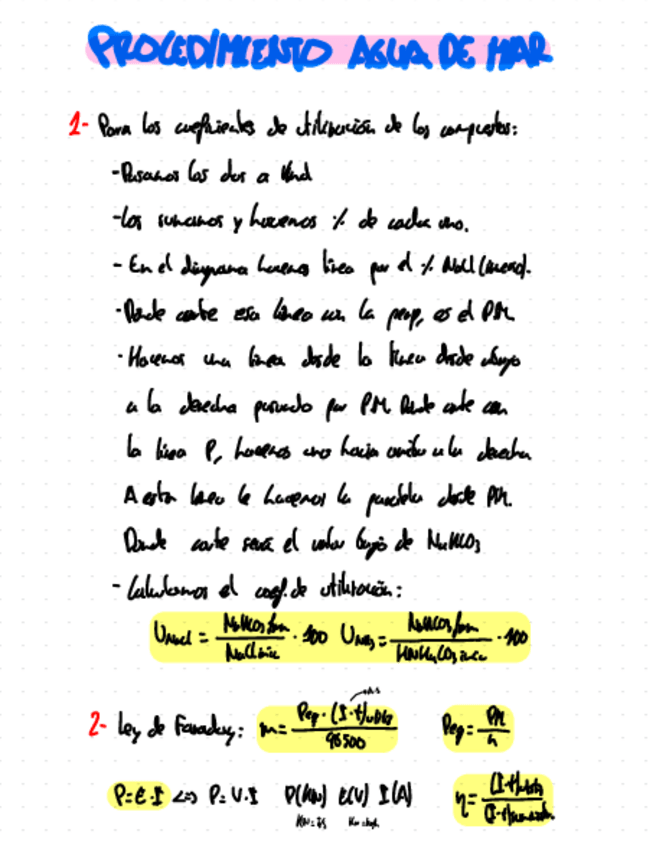 PROCEDIMIENTO AGUA DE MAR
1- Para los coeficientes de utilización de los compuestos:
- Pasamos los dos a
- Los sumamos y hacemos % de cada uno.
- En el diagrama hacemos línea por el % NaCl (inicial).
- Donde corte esa línea con la perp, es el PM.
- Hacemos una línea desde la línea desde abajo
a la derecha pasando por PM. Donde corte con
la línea P, hacemos una hacia arriba a la derecha
A esta línea le hacemos la paralela desde PM.
Donde corte será el valor bajo de NaHCO3
- Calculamos el coef. de utilización:
UNaCl = NaHCO3/ · 100 UNH3 = NaHCO3/ · 100
NaCl inic
2- Ley de Faraday: m = Peq · (I·t) / 96500 Peq = PM / n
P = E·I <=> P = V·I P(KW) E(V) I(A)
η = (I·t) / (I·t)